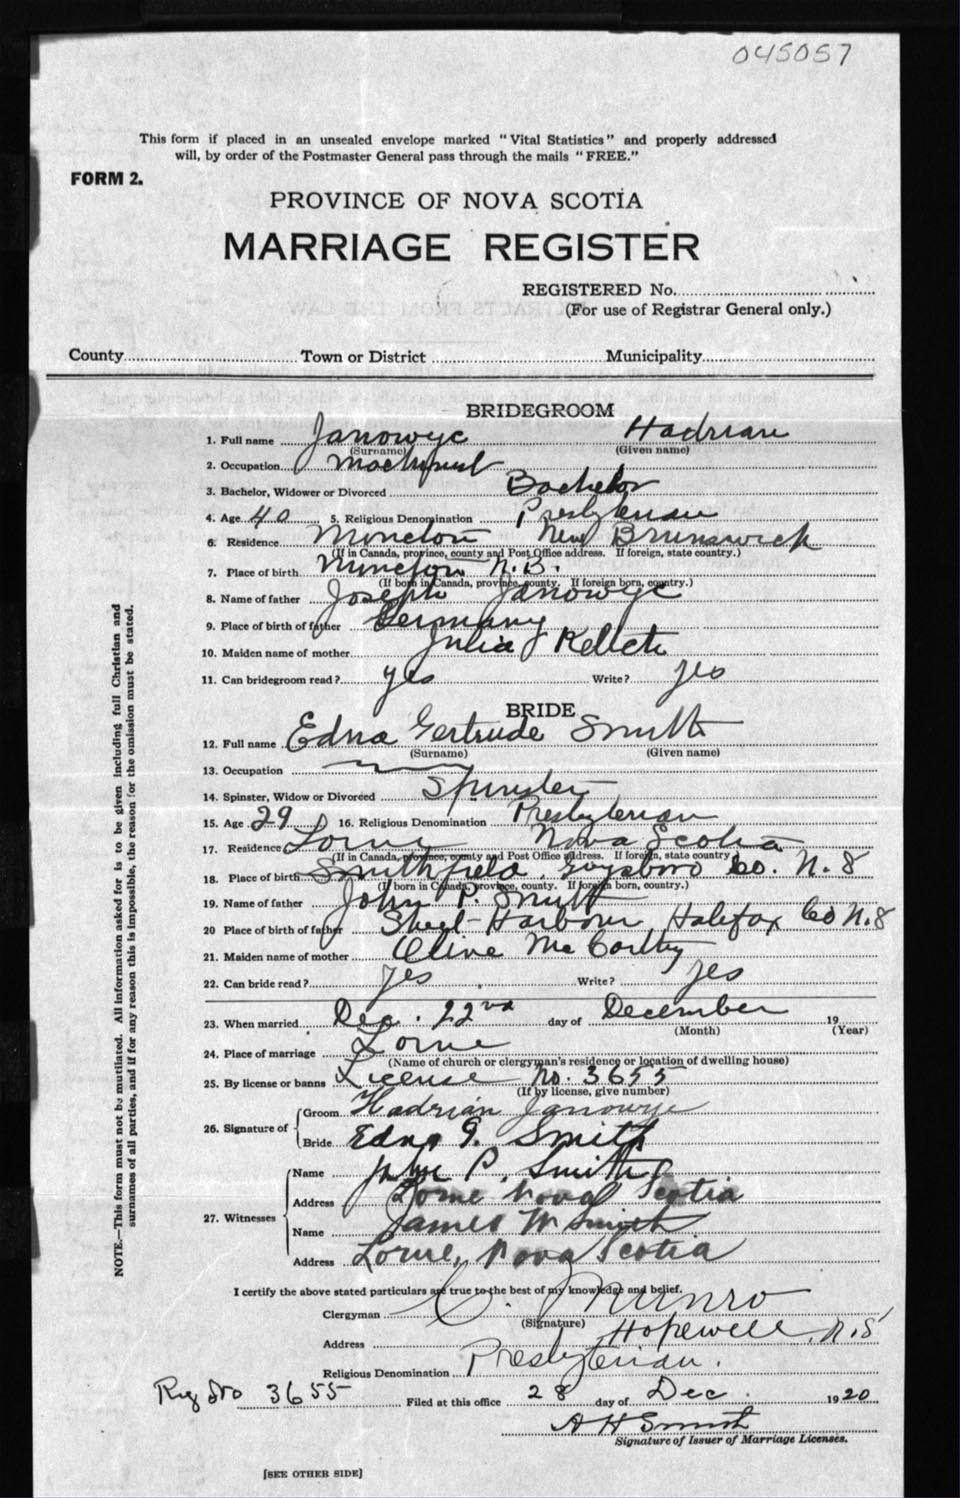 045057
This form if placed in an unsealed envelope marked "Vital Statistics" and properly addressed
will, by order of the Postmaster General pass through the mails "FREE."
FORM 2.
PROVINCE OF NOVA SCOTIA
MARRIAGE REGISTER
REGISTERED No.
(For use of Registrar General only.)
County Town or District Municipality
BRIDEGROOM
1. Full name Janowyc Hadrian
(Surname) (Given name)
2. Occupation Machinist
3. Bachelor, Widower or Divorced Bachelor
4. Age 40 5. Religious Denomination Presbyterian
6. Residence Moncton New Brunswick
(If in Canada, province, county and Post Office address. If foreign, state country.)
7. Place of birth Moncton N.B.
(If born in Canada, province, county. If foreign born, country.)
8. Name of father Joseph Janowyc
9. Place of birth of father Germany
10. Maiden name of mother Julia
11. Can bridegroom read? yes Write? yes
BRIDE
12. Full name Edna Gertrude Smith
(Surname) (Given name)
13. Occupation
14. Spinster, Widow or Divorced Spinster
15. Age 29 16. Religious Denomination Presbyterian
17. Residence Lorne Nova Scotia
(If in Canada, province, county and Post Office address. If foreign, state country
18. Place of birth Smithfield, Guysboro Co. N.S
(If born in Canada, province, county. If foreign born, country.)
19. Name of father John P. Smith
20 Place of birth of father Sheet Harbour Halifax Co N.S
21. Maiden name of mother Olive McCarthy
22. Can bride read? yes Write? yes
23. When married Dec. 22nd day of December 19
(Month) (Year)
24. Place of marriage Lorne
(Name of church or clergyman's residence or location of dwelling house)
25. By license or banns License No. 3655
(If by license, give number)
26. Signature of Groom Hadrian Janowyc
Bride Edna G. Smith
27. Witnesses Name John P. Smith
Address Lorne Nova Scotia
Name James W Smith
Address Lorne, Nova Scotia
I certify the above stated particulars are true to the best of my knowledge and belief.
Clergyman C. Munro
(Signature)
Address Hopewell, N.S
Religious Denomination Presbyterian.
Reg No 3655 Filed at this office 28 day of Dec. 1920
A H Smith
Signature of Issuer of Marriage Licenses.
[SEE OTHER SIDE]
NOTE.—This form must not be mutilated. All information asked for is to be given including full Christian and
surnames of all parties, and if for any reason this is impossible, the reason for the omission must be stated.